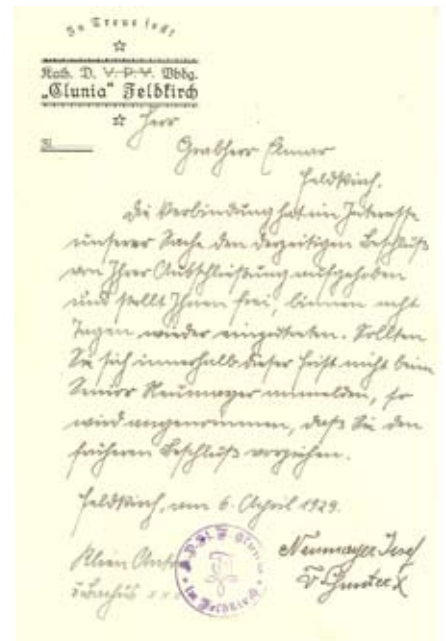 In Treue fest
Kath. D. V. P. V. Vbdg.
„Clunia" Feldkirch
Herr
Grabherr Elmar
Feldkirch.
Die Verbindung hat im Interesse
unserer Sache den derzeitigen Beschluß
an Ihrer Ausschließung aufgehoben
und stellt Ihnen frei, binnen acht
Tagen wieder einzutreten. Sollten
Sie sich innerhalb dieser Frist nicht beim
Senior Neumayer anmelden, so
wird angenommen, daß Sie den
früheren Beschluß vorziehen.
Feldkirch, am 6. April 1929.
Klien
Neumayer Josef
xxx
x
in Feldkirch